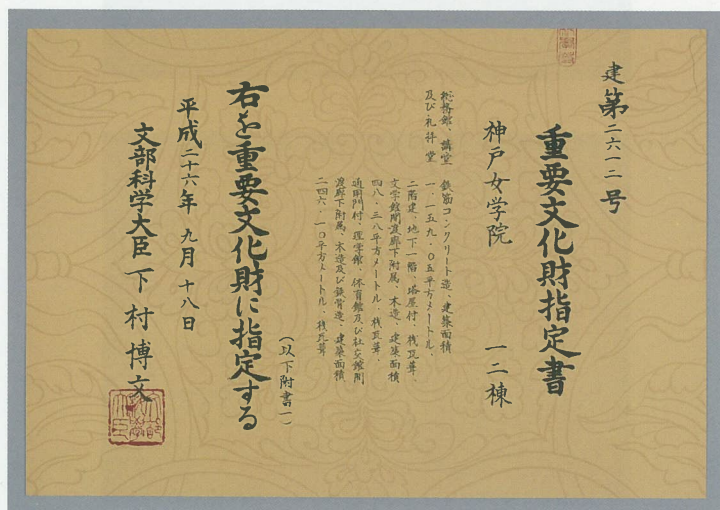 建第二六一二号
重要文化財指定書
神戸女学院　一二棟
総務館、講堂
及び礼拝堂
鉄筋コンクリート造、建築面積
一、一五九・〇五平方メートル、
二階建、地下一階、塔屋付、桟瓦葺
文学館間渡廊下附属、木造、建築面積
四八・三八平方メートル、桟瓦葺
通用門付、理学館、体育館及び社交館間
渡廊下附属、木造及び鉄骨造、建築面積
二四六・一〇平方メートル、桟瓦葺
（以下附書一）
右を重要文化財に指定する
平成二十六年九月十八日
文部科学大臣　下村博文